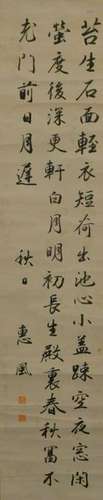 苔生石面輕衣短荷出池心小蓋踈空夜窓閑
螢度後深更軒白月明初長生殿裏春秋冨不
老門前日月遲
秋日
惠風